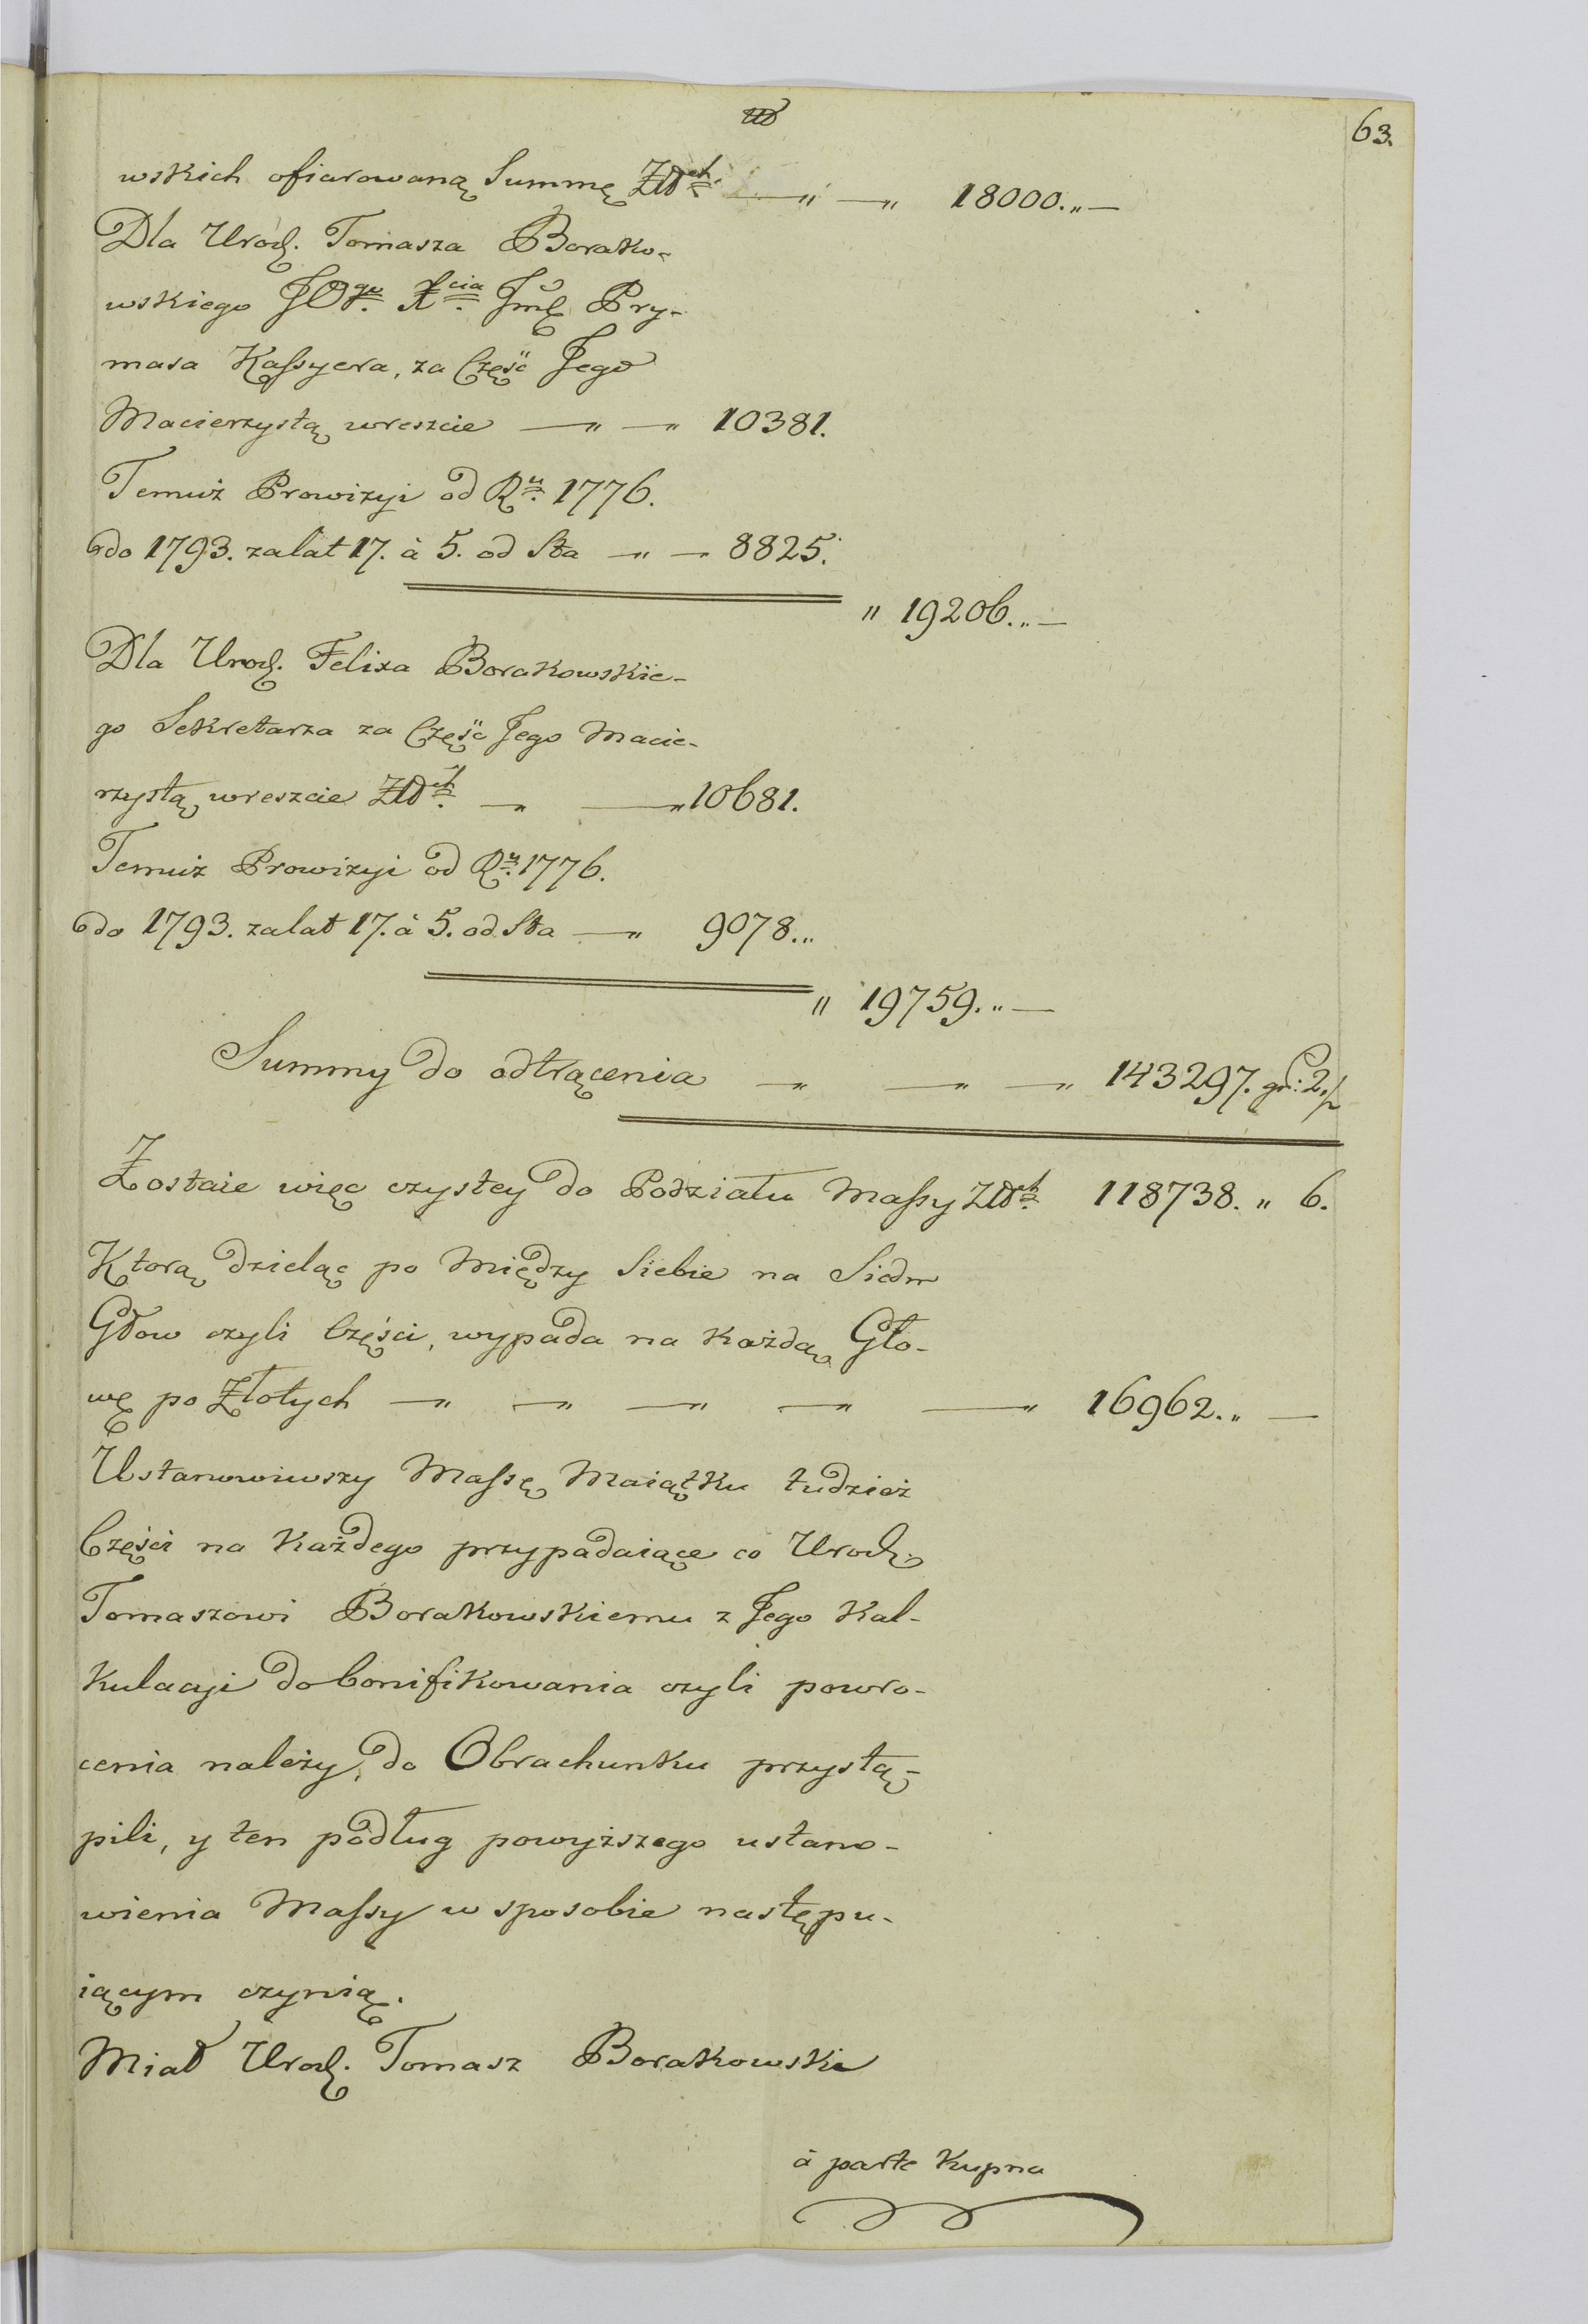 63.
wskich ofiarowaną Summę Złłch — " — " 18000. " —
Dla Urodz. Tomasza Borako-
wskiego JOgo Xcia Jmć Pry-
masa Kassyera, za Część Jego
Macierzystą wreszcie — " — " 10381.
Temuż Prowizyi od Ru 1776.
do 1793. za lat 17. à 5. od Sta — " — 8825.
" 19206. " —
Dla Urodz. Felixa Borakowskie-
go Sekretarza za Część Jego Macie-
rzystą wreszcie Złłch — " — " 10681.
Temuż Prowizyi od Ru 1776.
do 1793. za lat 17. à 5. od Sta — " 9078. "
" 19759. " —
Summy do odtrącenia — " — " — " 143297. gr: 2 1/2
Zostaie więc czystey do Podziału Massy Złłch 118738. " 6.
Ktorą dzieląc po Między Siebie na Siedm
Głow czyli Części, wypada na każdą Gło-
wę po Złotych — " — " — " — " — " 16962. " —
Ustanowiwszy Massę Maiątku tudzież
Części na każdego przypadaiące co Urodz.
Tomaszowi Borakowskiemu z Jego Kal-
kulacyi do bonifikowania czyli powro-
cenia należy, do Obrachunku przystą-
pili, y ten podług powyższego ustano-
wienia Massy w sposobie następu-
iącym czynią.
Miał Urodz. Tomasz Borakowski
à parte Kupna